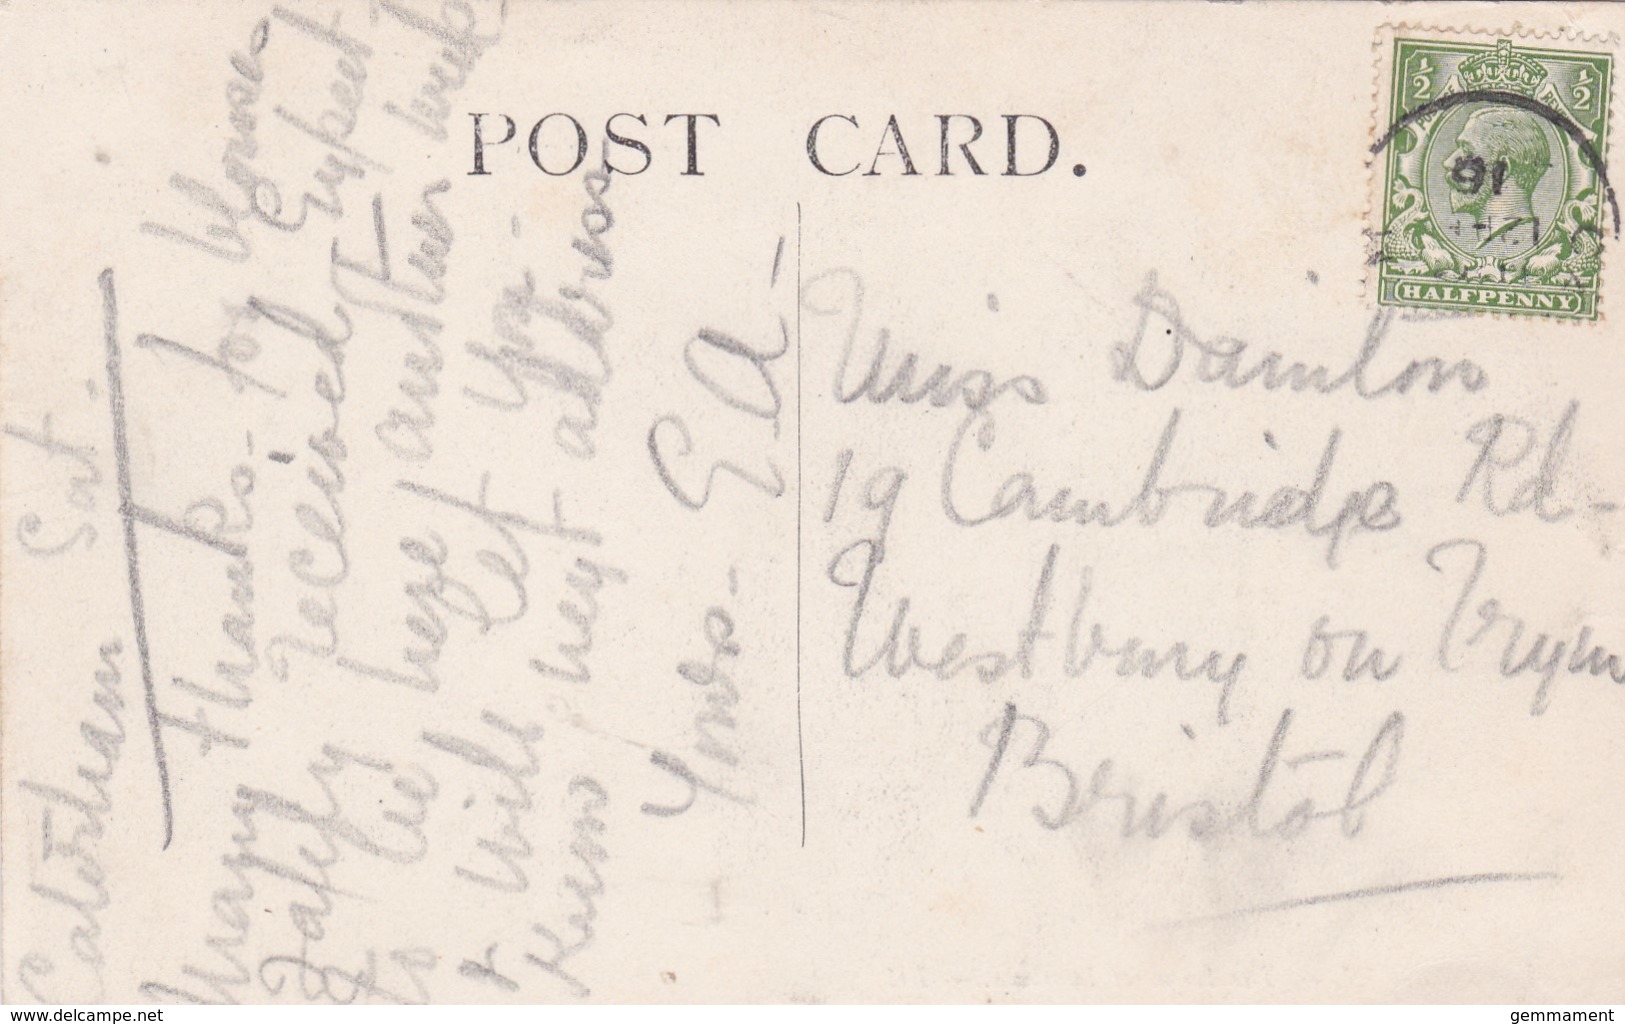 POST CARD.
½ ½
HALFPENNY
16
Miss Dainton
19 Cambridge Rd-
Westbury on Trym
Bristol
Caterham Sat.
Many thanks. for
safely received Expect
to be here another week
& will let you
know next address
Yours- G A-
www.delcampe.net
gemmament